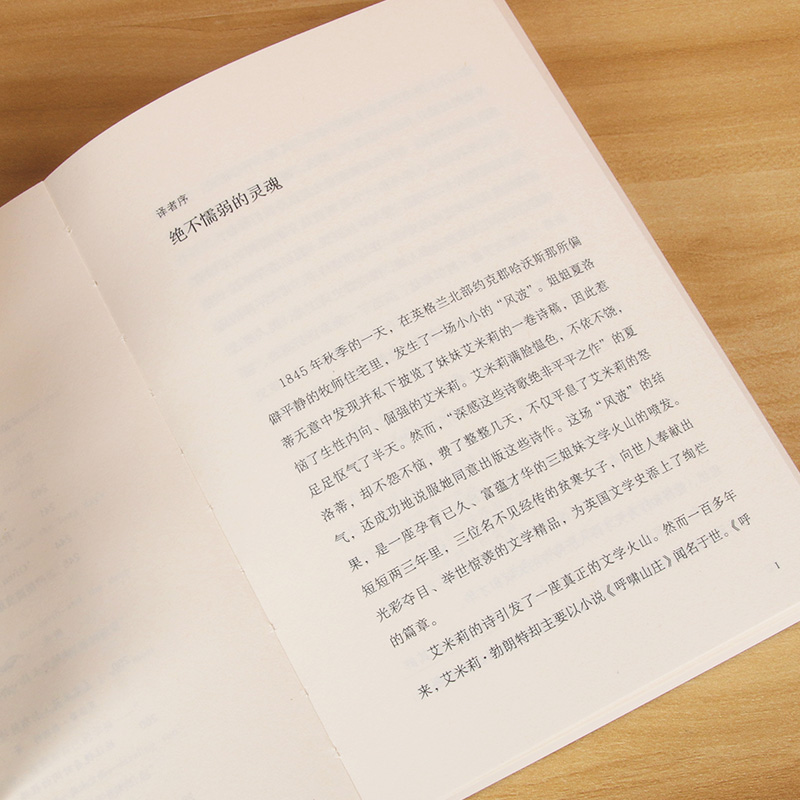 译者序
绝不懦弱的灵魂
1845年秋季的一天，在英格兰北部约克郡哈沃斯那所偏
僻平静的牧师住宅里，发生了一场小小的“风波”。姐姐夏洛
蒂无意中发现并私下披览了妹妹艾米莉的一卷诗稿，因此惹
恼了生性内向、倔强的艾米莉。艾米莉满脸愠色，不依不饶，
足足怄气了半天。然而，“深感这些诗歌绝非平平之作”的夏
洛蒂，却不怨不恼，费了整整几天，不仅平息了艾米莉的怒
气，还成功地说服她同意出版这些诗作。这场“风波”的结
果，是一座孕育已久、富蕴才华的三姐妹文学火山的喷发。
短短两三年里，三位名不见经传的贫寒女子，向世人奉献出
光彩夺目、举世惊羡的文学精品，为英国文学史添上了绚烂
的篇章。
艾米莉的诗引发了一座真正的文学火山。然而一百多年
来，艾米莉·勃朗特却主要以小说《呼啸山庄》闻名于世。《呼
1